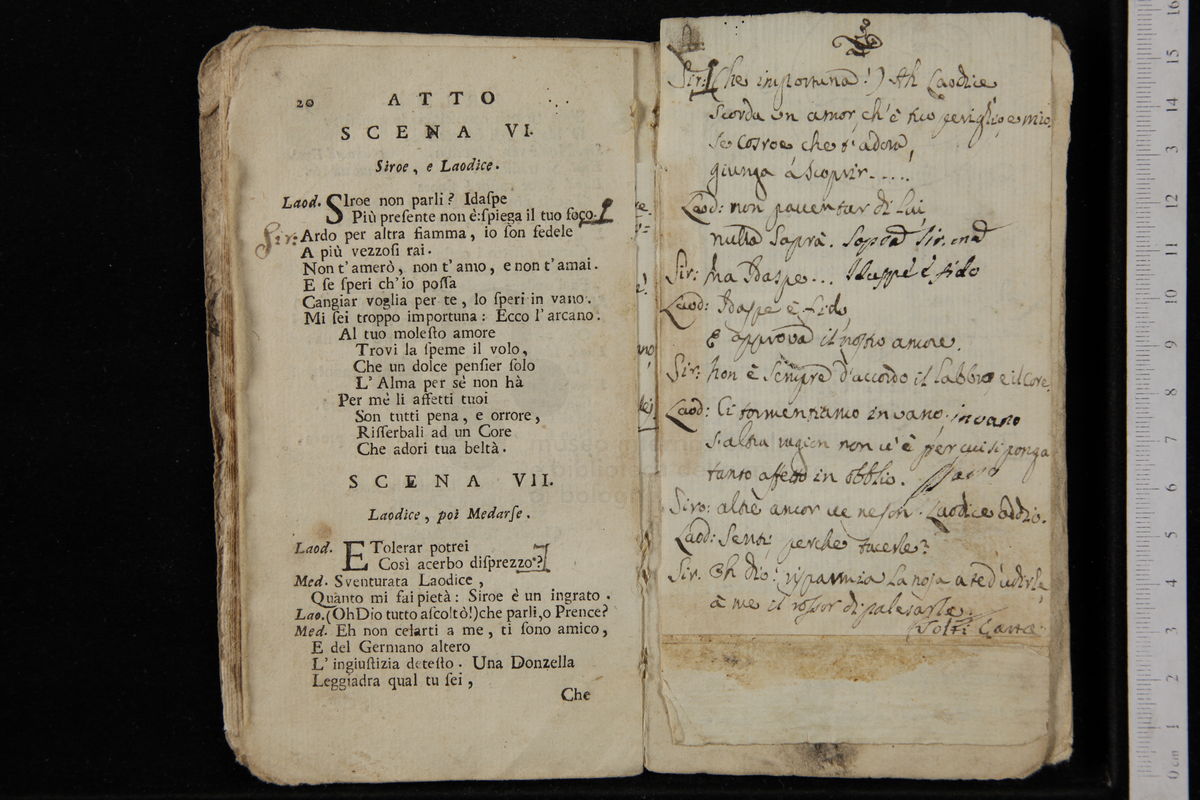 20 ATTO
SCENA VI.
Siroe, e Laodice.
Laod. SIroe non parli? Idaſpe
Più preſente non è: ſpiega il tuo foco.
Sir: Ardo per altra fiamma, io ſon fedele
A più vezzoſi rai.
Non t'amerò, non t'amo, e non t'amai.
E ſe ſperi ch'io poſſa
Cangiar voglia per te, lo ſperi in vano.
Mi ſei troppo importuna: Ecco l'arcano.
Al tuo moleſto amore
Trovi la ſpeme il volo,
Che un dolce penſier ſolo
L'Alma per sé non hà
Per mè li affetti tuoi
Son tutti pena, e orrore,
Riſſerbali ad un Core
Che adori tua beltà.
SCENA VII.
Laodice, poi Medarſe.
Laod. E Tolerar potrei
Così acerbo diſprezzo?
Med. Sventurata Laodice,
Quanto mi fai pietà: Siroe è un ingrato.
Lao. (Oh Dio tutto aſcoltò!) che parli, o Prence?
Med. Eh non celarti a me, ti ſono amico,
E del Germano altero
L'ingiuſtizia deteſto. Una Donzella
Leggiadra qual tu ſei,
Che
Sir: (Che importuna!) Ah Laodice
scorda un amor, ch'è tuo periglio, e mio.
se Cosroe che t'adora,
giunga á scoprir.....
Laod: non paventar di lui,
nulla saprà.
Sir: ma Idaspe... Idaspe è fido
Laod: Idaspe è fido,
E approva il nostro amore.
Sir: Non è sempre d'accordo il labbro, e il core.
Laod: Ci tormentiamo invano. invano
s'altra ragion non v'è per cui si ponga
tanto affetto in obblio.
Siro: altre ancor ve ne son. Laodice addio.
Laod: Senti, perche tacerle?
Sir. Oh dio! risparmia la noja a te d'udirle,
à me il rossor di palesarle.
Volti Carta